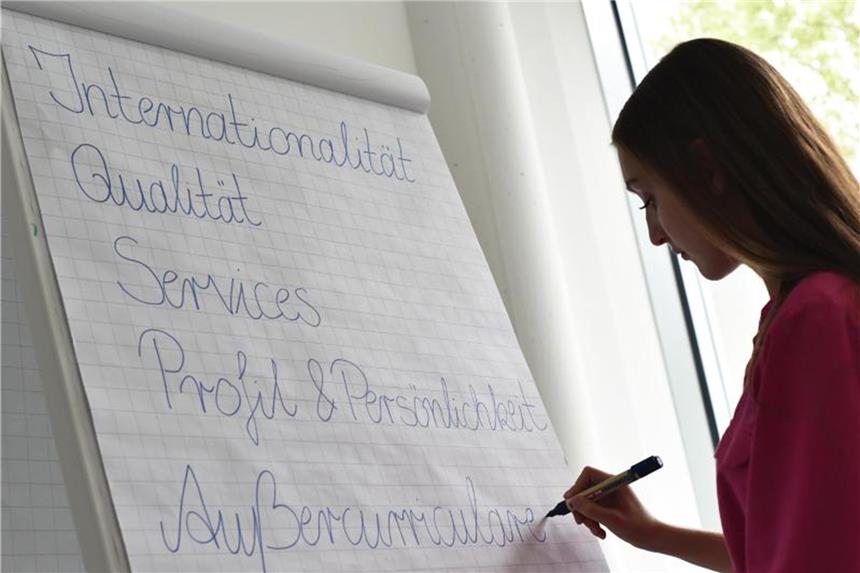 Internationalität
Qualität
Services
Profil & Persönlichkeit
Außercurriculare